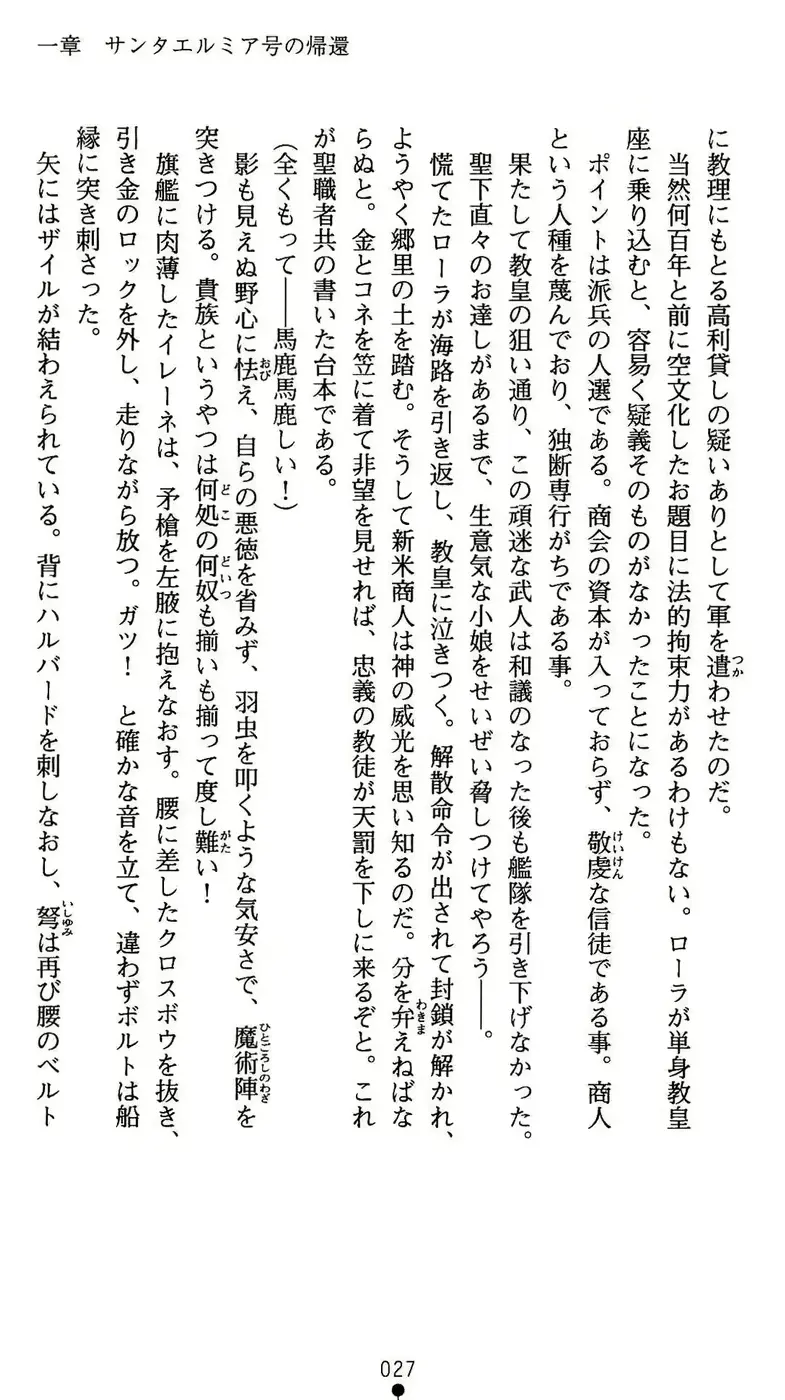 一章　サンタエルミア号の帰還
に教理にもとる高利貸しの疑いありとして軍を遣わせたのだ。
　当然何百年と前に空文化したお題目に法的拘束力があるわけもない。ローラが単身教皇
座に乗り込むと、容易く疑義そのものがなかったことになった。
　ポイントは派兵の人選である。商会の資本が入っておらず、敬虔な信徒である事。商人
という人種を蔑んでおり、独断専行がちである事。
　果たして教皇の狙い通り、この頑迷な武人は和議のなった後も艦隊を引き下げなかった。
　聖下直々のお達しがあるまで、生意気な小娘をせいぜい脅しつけてやろう――。
　慌てたローラが海路を引き返し、教皇に泣きつく。解散命令が出されて封鎖が解かれ、
ようやく郷里の土を踏む。そうして新米商人は神の威光を思い知るのだ。分を弁えねばな
らぬと。金とコネを笠に着て非望を見せれば、忠義の教徒が天罰を下しに来るぞと。これ
が聖職者共の書いた台本である。
（全くもって――馬鹿馬鹿しい！）
　影も見えぬ野心に怯え、自らの悪徳を省みず、羽虫を叩くような気安さで、魔術陣を
突きつける。貴族というやつは何処の何奴も揃いも揃って度し難い！
　旗艦に肉薄したイレーネは、矛槍を左腋に抱えなおす。腰に差したクロスボウを抜き、
引き金のロックを外し、走りながら放つ。ガツ！　と確かな音を立て、違わずボルトは船
縁に突き刺さった。
　矢にはザイルが結わえられている。背にハルバードを刺しなおし、弩は再び腰のベルト
027